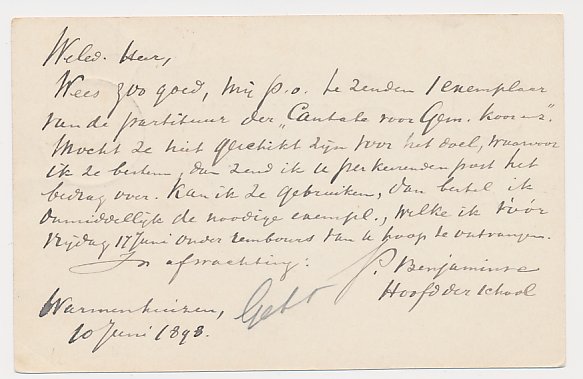 Weled. Heer,
Wees zoo goed, mij p.o. te zenden 1 exemplaar
van de partituur der "Cantate voor Gem. koor".
Mocht ze niet geschikt zijn voor het doel, waarvoor
ik ze bestem, dan zend ik u per keerenden post het
bedrag over. Kan ik ze gebruiken, dan bestel ik
onmiddellijk de noodige exempl., welke ik vóór
Vrijdag 17 Juni onder rembours van u hoop te ontvangen.
In afwachting:
P. Benjaminse
Hoofd der school
Warmenhuizen,
10 Juni 1898.